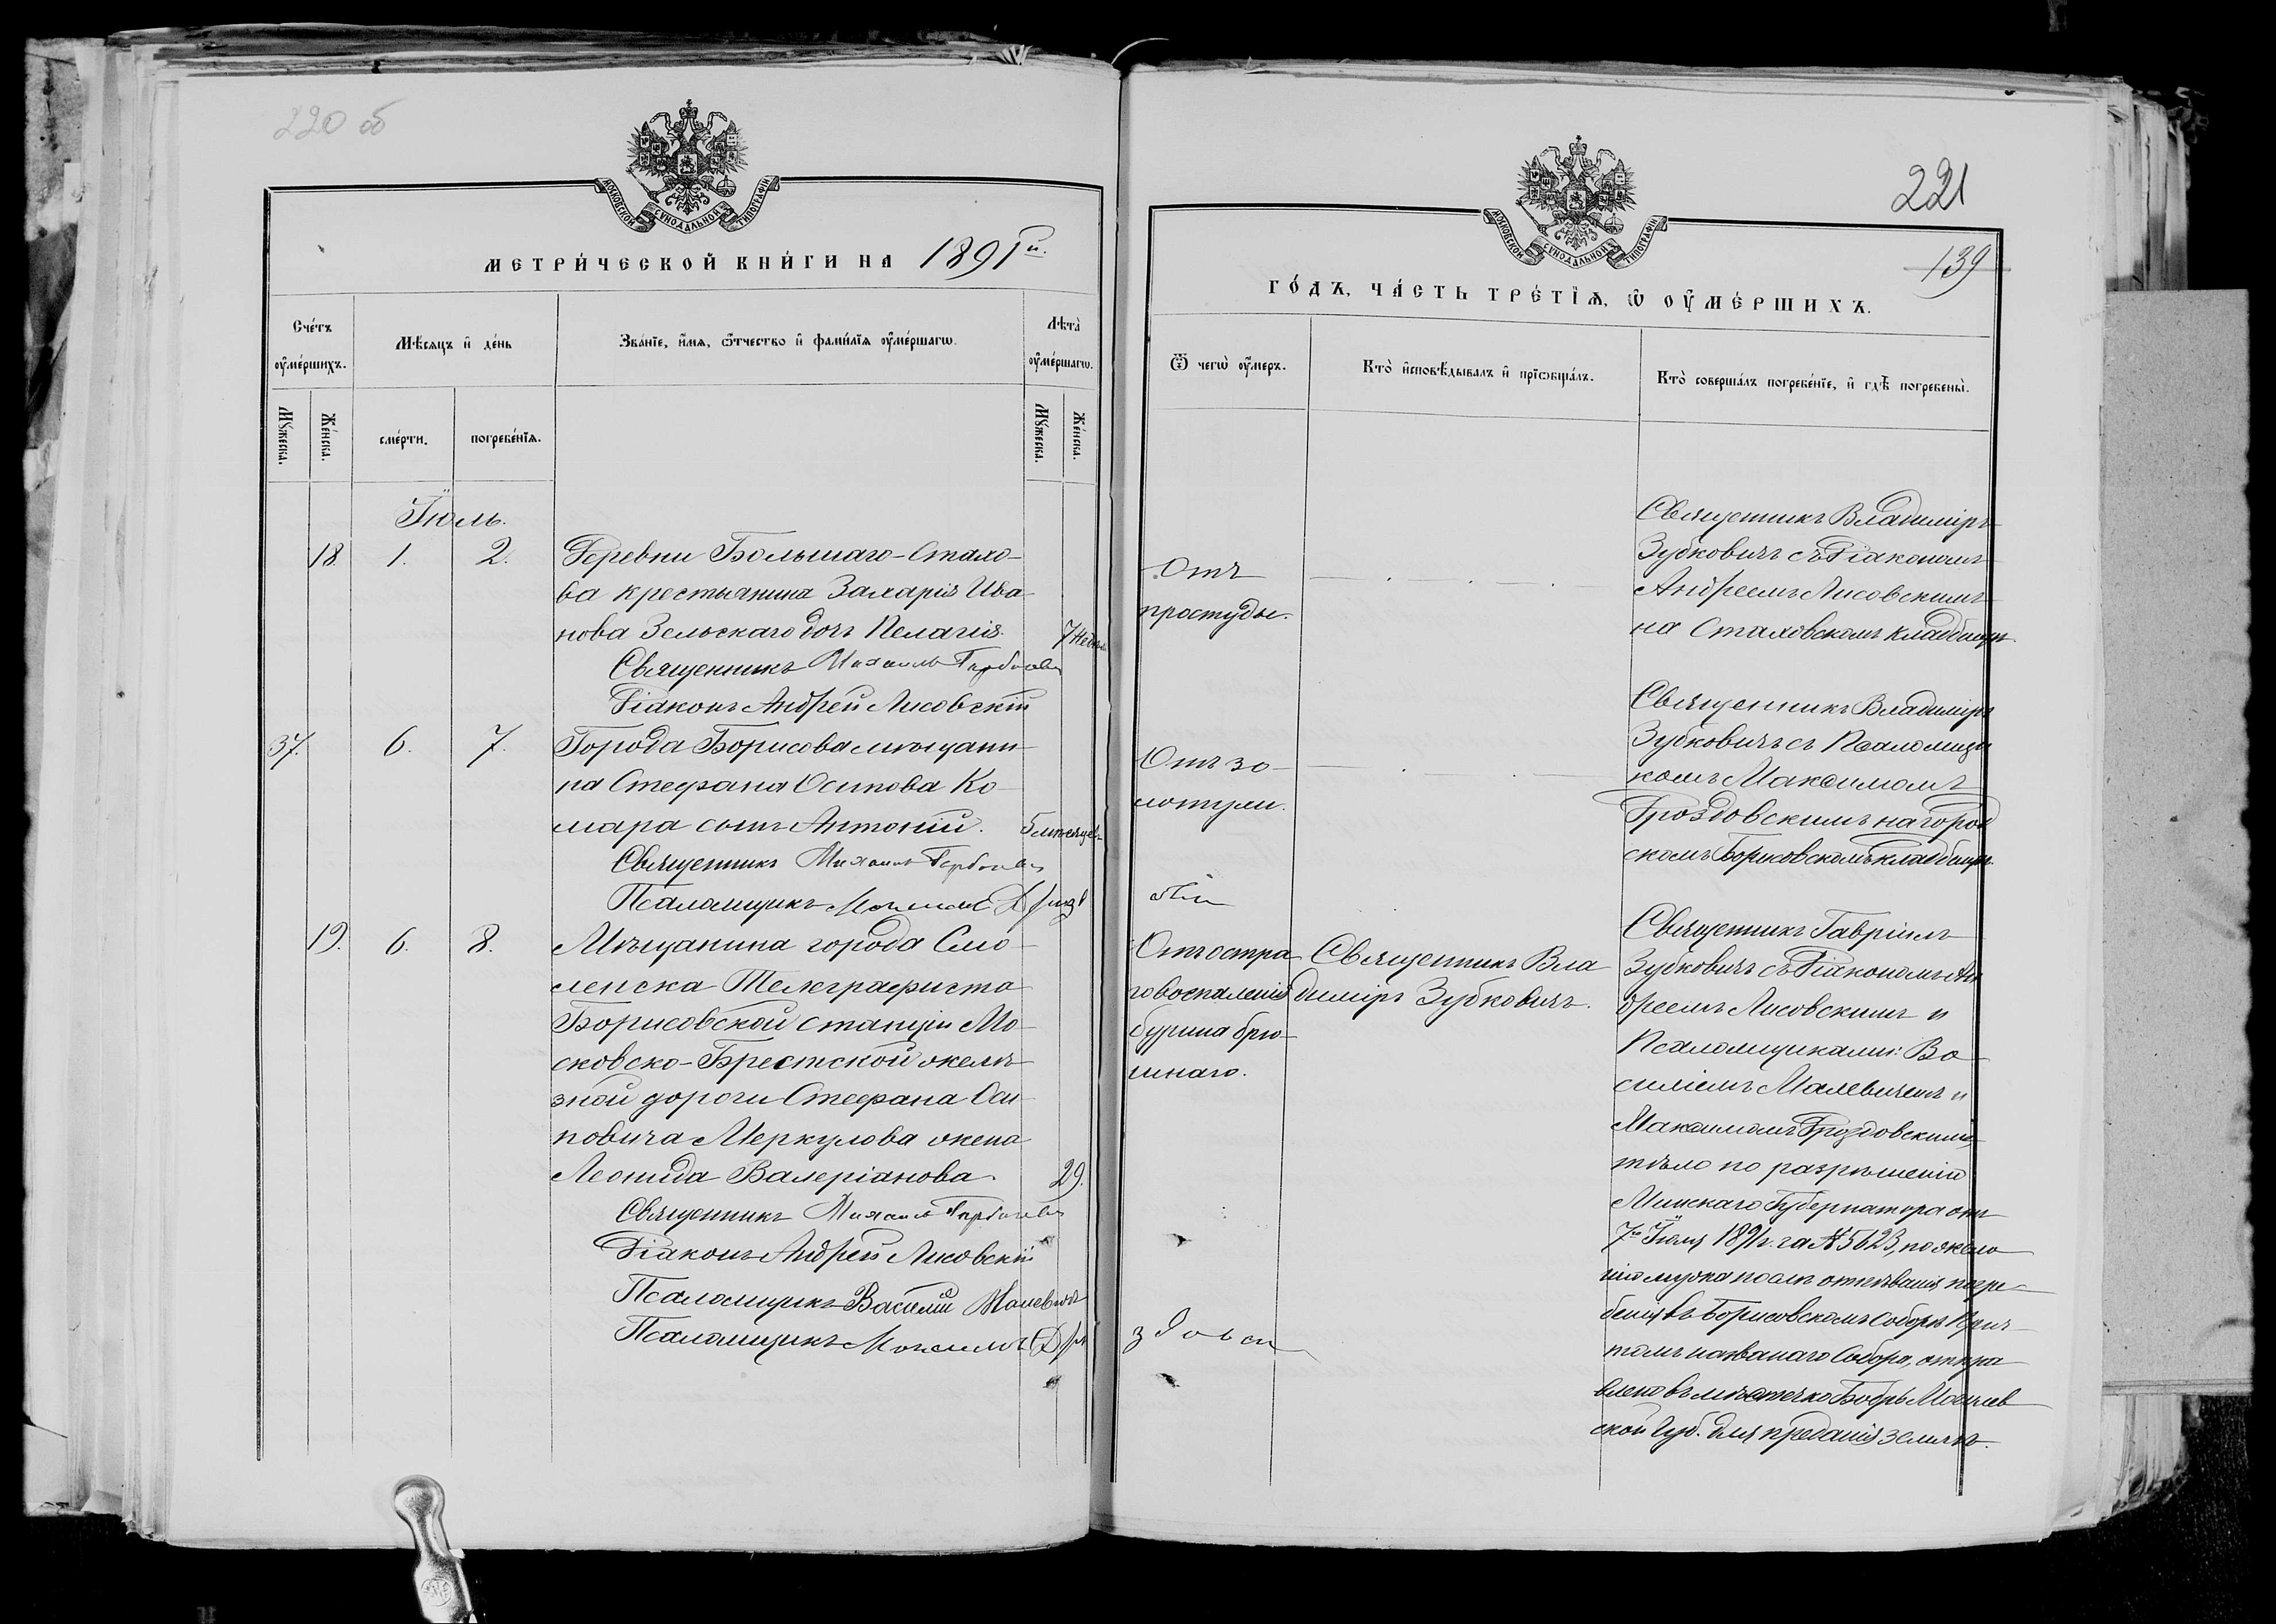 220 об
МОСКОВСКОЙ СѴНОДАЛЬНОЙ ТИПОГРАФІИ
МЕТРИ́ЧЕСКОЙ КНИ́ГИ НА 1891й.
Сче́тъ ᲂу҆ме́ршихъ.
Мѣ́сяцъ и҆ де́нь
Зва́нїе, и҆́мѧ, ѻ҆́тчество и҆ фами́лїѧ ᲂу҆ме́ршагѡ.
Лѣ́та ᲂу҆ме́ршагѡ.
Мꙋ́жеска.
Же́нска.
сме́рти.
погребе́нїѧ.
Мꙋ́жеска.
Же́нска.
Іюль.
18. 1. 2. Деревни Большаго-Стахо-
ва крестьянина Захарія Ива-
нова Зельскаго дочь Пелагія. 7 недѣль
Священникъ Михаилъ
Діаконъ Андрей Лисовскій
37. 6. 7. Города Борисова мѣщани-
на Стефана Осипова Ко-
мара сынъ Антоній. 5 мѣсяцев
Священникъ Михаилъ
Псаломщикъ Максимъ
19. 6. 8. Мѣщанина города Смо-
ленска Телеграфиста
Борисовской станціи Мо-
сковско-Брестской желѣ-
зной дороги Стефана Оси-
повича Меркулова жена
Леонида Валеріанова. 29.
Священникъ Михаилъ
Діаконъ Андрей Лисовскій
Псаломщикъ Василій Малевичъ
Псаломщикъ Максимъ
221
139
МОСКОВСКОЙ СѴНОДАЛЬНОЙ ТИПОГРАФІИ
ГО́ДЪ, ЧА́СТЬ ТРЕ́ТЇѦ, Ѡ҆ ОУ҆МЕ́РШИХЪ.
Ѿ чегѡ̀ ᲂу҆́меръ.
Кто̀ и҆сповѣ́дывалъ и҆ прїѡбща́лъ.
Кто̀ соверша́лъ погребе́нїе, и҆ гдѣ̀ погребены̀.
Отъ
простуды.
Священникъ Владиміръ
Зубковичъ съ Діакономъ
Андреемъ Лисовскимъ
на Стаховскомъ кладбищѣ.
Отъ зо-
лотухи.
Священникъ Владиміръ
Зубковичъ съ Псаломщи
комъ Максимомъ
Гроздовскимъ на город
скомъ Борисовскомъ кладбищѣ.
Отъ остра
го воспаленія
бурина брю-
шнаго.
Священникъ Вла
диміръ Зубковичъ.
Священникъ Гавріилъ
Зубковичъ съ Діакономъ Ан
дреемъ Лисовскимъ и
Псаломщиками: Ва-
силіемъ Малевичемъ и
Максимомъ Гроздовскимъ,
тѣло по разрѣшенію
Минскаго Губернатора отъ
7го Іюля 1891 г. за № 5623, по жела-
нію мужа послѣ отпѣванія погре-
бенія въ Борисовскомъ Соборѣ Прич-
томъ названаго Собора, отпра-
влено въ мѣстечко Бобръ Могилев
ской Губ. для преданія землѣ.